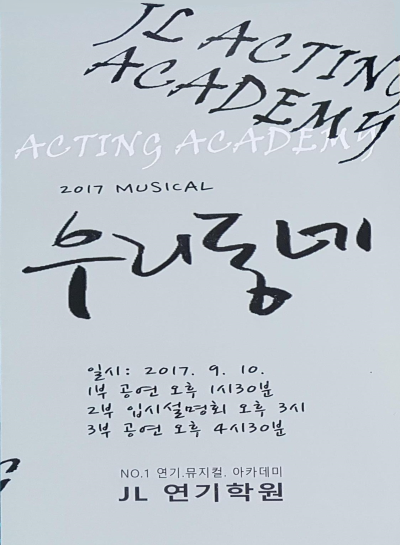 JL ACTING
ACADEMY
ACTING ACADEMY
2017 MUSICAL
우리동네
일시: 2017. 9. 10.
1부 공연 오후 1시30분
2부 입시설명회 오후 3시
3부 공연 오후 4시30분
NO.1 연기.뮤지컬. 아카데미
JL 연기학원